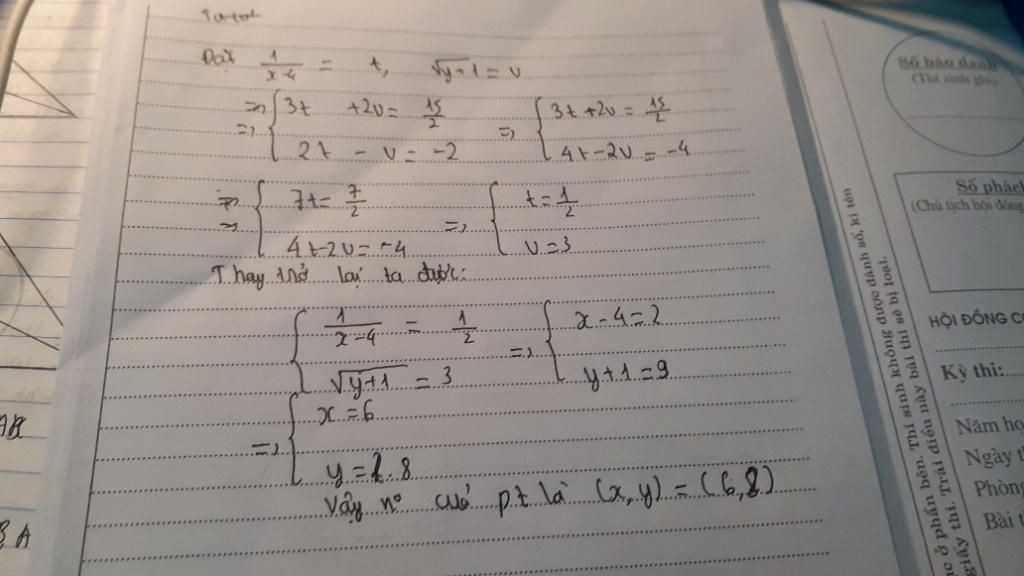 Đặt 1/(x-4) = t, √(y+1) = v
=> { 3t +2v = 15/2 => { 3t +2v = 15/2
2t - v = -2 4t-2v = -4
=> { 7t = 7/2 => { t = 1/2
4t-2v = -4 v = 3
Thay trở lại ta được:
{ 1/(x-4) = 1/2 => { x - 4 = 2
√(y+1) = 3 y+1 = 9
=> { x = 6
y = 8
Vậy n° cuả pt là (x,y) = (6,8)
Số báo danh
(Thí sinh ghi)
Số phách
(Chủ tịch hội đồng
HỘI ĐỒNG
Kỳ thi:
Năm họ
Ngày t
Phòng
Bài t
ở phần bên. Thí sinh không được đánh số, kí tên
giấy thi. Trái điều này bài thi sẽ bị loại.
AB
A